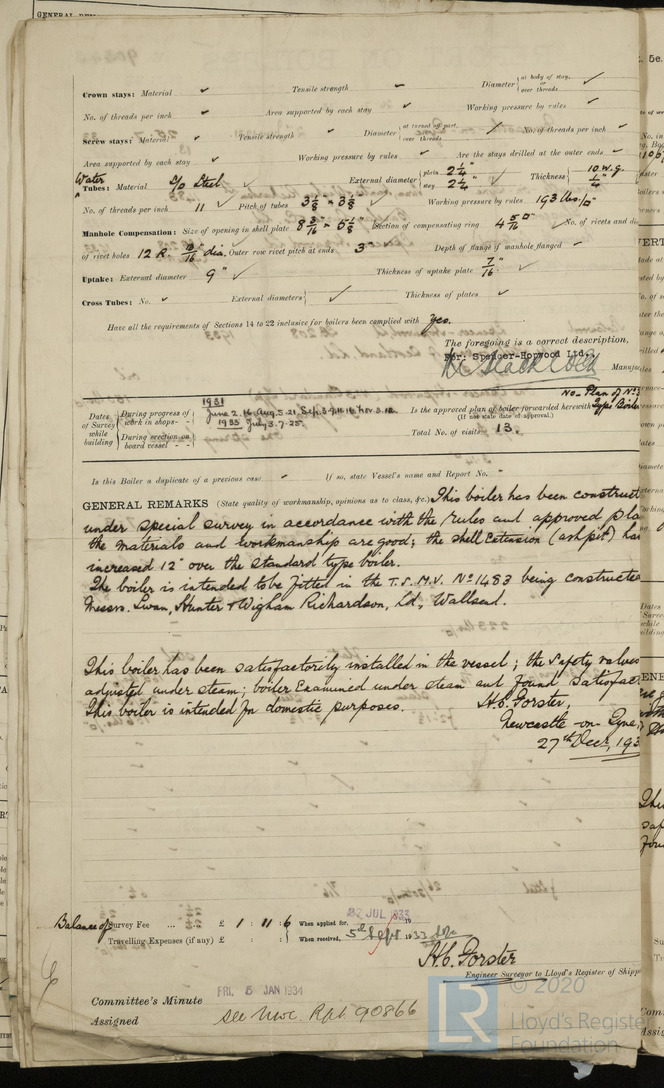 GENERAL
Crown stays: Material ✓ Tensile strength ✓ Diameter { at body of stay, or over threads ✓
No. of threads per inch ✓ Area supported by each stay ✓ Working pressure by rules ✓
Screw stays: Material ✓ Tensile strength ✓ Diameter { at turned off part, or over threads ✓ No. of threads per inch ✓
Area supported by each stay ✓ Working pressure by rules ✓ Are the stays drilled at the outer ends ✓
Water Tubes: Material S/D Steel ✓ External diameter { plain 2 1/4" stay 2 1/4" Thickness { 10 W.G. 1/4
No. of threads per inch 11 ✓ Pitch of tubes 3 1/8 × 3 3/8 Working pressure by rules 193 lbs/□"
Manhole Compensation: Size of opening in shell plate 8 3/16" × 5 1/8" Section of compensating ring 4 5/16 □" ✓ No. of rivets and dia
of rivet holes 12 R. dia. Outer row rivet pitch at ends 3" ✓ Depth of flange if manhole flanged ✓
Uptake: External diameter 9" ✓ Thickness of uptake plate 7/16" ✓
Cross Tubes: No. ✓ External diameters { ✓ Thickness of plates ✓
Have all the requirements of Sections 14 to 22 inclusive for boilers been complied with Yes.
The foregoing is a correct description,
For: Spencer-Hopwood Ltd.
Manufac
Dates of Survey while building
During progress of work in shops - -
1931
June 2. 16. Aug. 5. 21. Sep. 3. 9. 11. 16. Nov. 3. 12.
1933 July 3. 7. 25.
During erection on board vessel - - -
Is the approved plan of boiler forwarded herewith No - Plan of No 3 Type Boiler
(If not state date of approval.)
Total No. of visits 13.
Is this Boiler a duplicate of a previous case. - If so, state Vessel's name and Report No. -
GENERAL REMARKS (State quality of workmanship, opinions as to class, &c.) This boiler has been construct
under special survey in accordance with the rules and approved pla
the materials and workmanship are good; the shell extension (ash pit) has
increased 12" over the standard type boiler.
The boiler is intended to be fitted in the T.S.M.V. No 1483 being constructed
Messrs. Swan, Hunter & Wigham Richardson, Ld, Wallsend.
This boiler has been satisfactorily installed in the vessel; the safety valves
adjusted under steam; boiler examined under steam and found satisfac
This boiler is intended for domestic purposes. H.C. Forster,
Newcastle-on-Tyne,
27th Decr, 193
Balance of Survey Fee ... ... £ 1 : 11 : 6 When applied for, 22 JUL 1933 19
Travelling Expenses (if any) £ : : When received, 5th Sept 1933
H.C. Forster
Engineer Surveyor to Lloyd's Register of Shipp
Committee's Minute FRI. 5 JAN 1934
Assigned See Nwc. Rpt 90866
LR
© 2020
Lloyd's Registe
Foundation